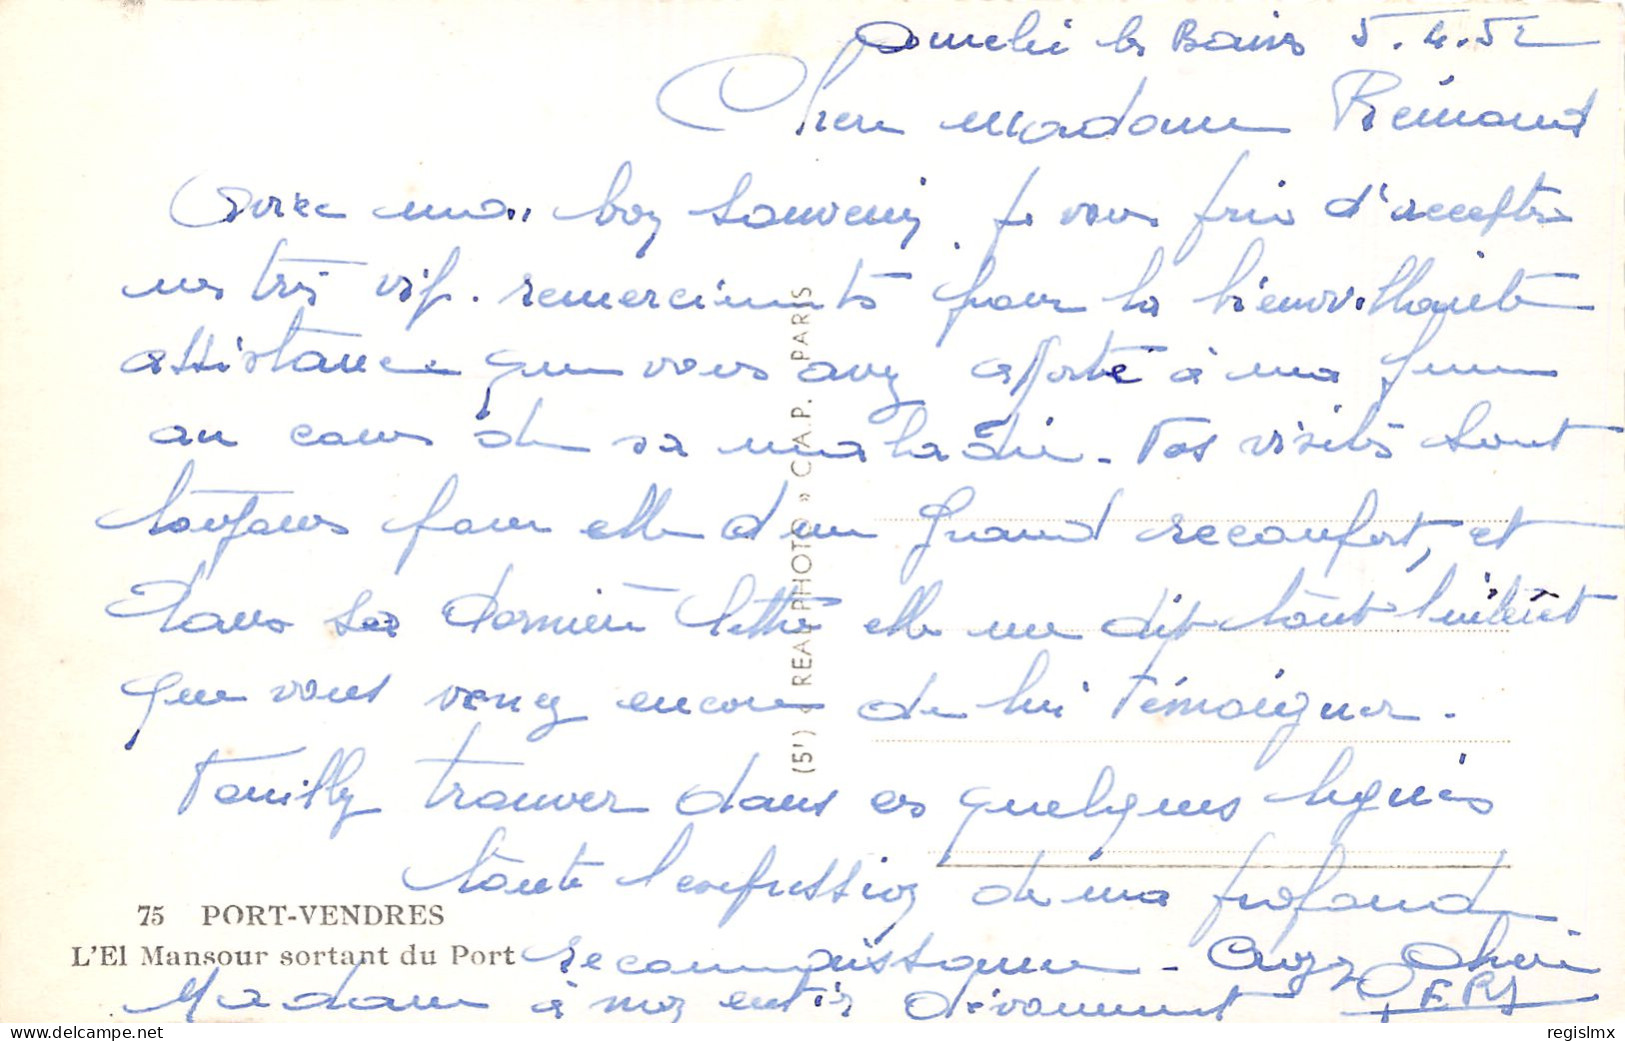 Amélie les Bains 5.4.52
Chère Madame Rémond
Avec mon bon souvenir je vous prie d'accepter
mes très vifs remerciements pour la bienveillante
assistance que vous avez apporté à ma femme
au cours de sa maladie - Vos visites sont
toujours pour elle d'un grand reconfort, et
dans sa dernière lettre elle me dit tout l'intérêt
que vous venez encore de lui témoigner.
Veuillez trouver dans ces quelques lignes
toute l'expression de ma profonde
reconnaissance - Croyez chère
Madame à mon entier dévouement
75 PORT-VENDRES
L'El Mansour sortant du Port
(5') « REAL-PHOTO » C.A.P. PARIS
regislmx
delcampe.net